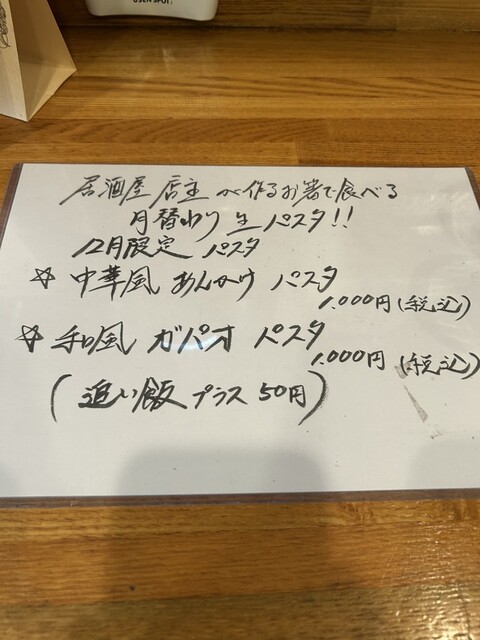 USEN SPOT
居酒屋 店主 が作るお箸で食べる
月替わり 生 パスタ!!
12月限定 パスタ
☆ 中華風 あんかけ パスタ
1.000円(税込)
☆ 和風 ガパオ パスタ
1.000円(税込)
(追い飯 プラス 50円)